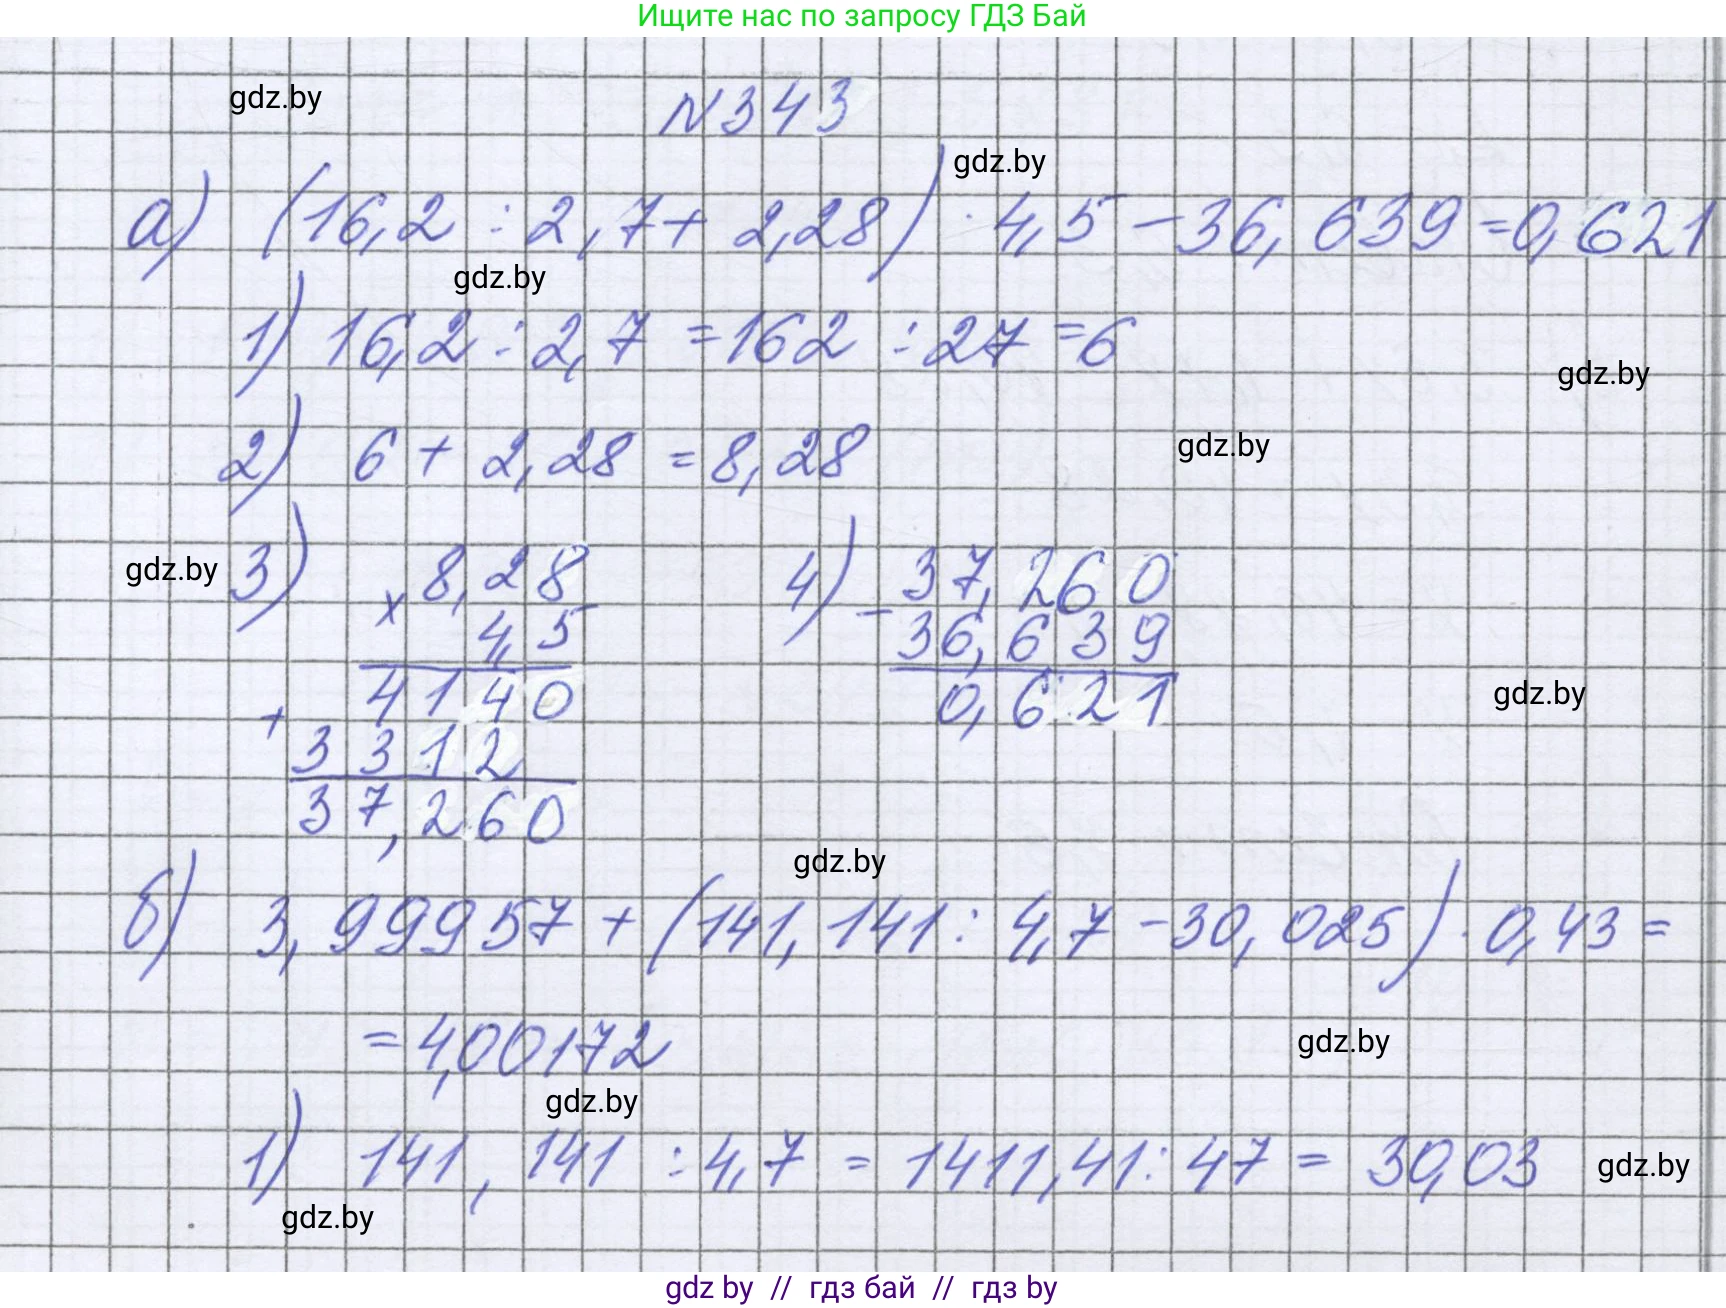 Ищите нас по запросу ГДЗ Бай
gdz.by
N343
gdz.by
а) (16,2 : 2,7 + 2,28) · 4,5 - 36,639 = 0,621
gdz.by
1) 16,2 : 2,7 = 162 : 27 = 6
gdz.by
2) 6 + 2,28 = 8,28
gdz.by
gdz.by
3) x 8,28 4) - 37,260
4,5 36,639
4140 0,621
gdz.by
+ 3312
37,260
gdz.by
б) 3,99957 + (141,141 : 4,7 - 30,025) · 0,43 =
= 4,00172
gdz.by
gdz.by
1) 141,141 : 4,7 = 1411,41 : 47 = 30,03
gdz.by
gdz.by
gdz by // гдз бай // гдз by